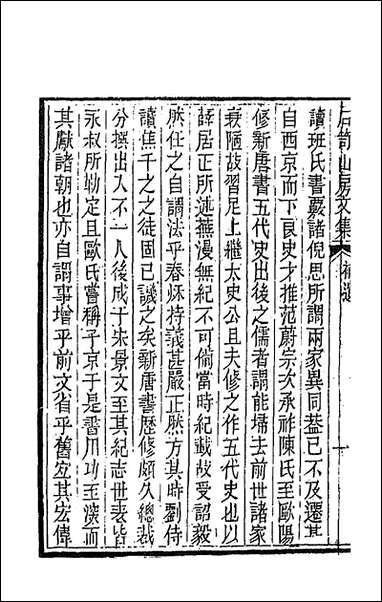 石笥山房文集　補遺
讀班氏書覈諸倪思所謂兩家異同葢已不及遷甚
自西京而下良史才推范蔚宗次永祚陳氏至歐陽
修新唐書五代史出後之儒者謂能埽去前世諸家
裒陋故習足上繼太史公且夫修之作五代史也以
薛居正所述蕪漫無紀不可備當時紀載故受詔毅
然任之自謂法乎春秋持義甚嚴正然方其時劉侍
讀焦千之之徒固已譏之矣新唐書歷修頗久總裁
分撰出入不一人後成于宋景文至其紀志世表皆
永叔所勒定且歐氏嘗稱子京于是書用功至深而
其獻諸朝也亦自謂事增乎前文省乎舊宐其宏偉